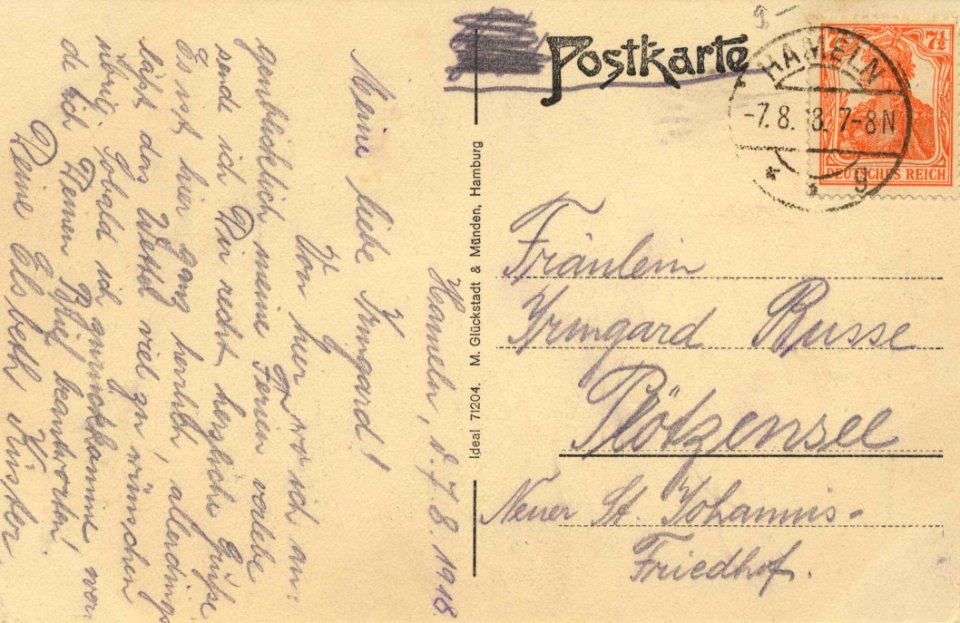 Postkarte
7½ 7½
DEUTSCHES REICH
HAMELN
-7.8.18. 7-8N
* * g
Ideal 71204. M. Glückstadt & Münden, Hamburg
Hameln, d. 7.8.1918.
Meine liebe Irmgard!
Von hier, wo ich au-
genblicklich meine Ferien verlebe
sende ich Dir recht herzliche Grüße.
Es ist hier ganz herrlich, allerdings
läßt das Wetter viel zu wünschen
übrig. Sobald ich zurückkomme wer-
de ich Deinen Brief beantworten!
Deine Elsbeth Küster
Fräulein
Irmgard Busse
Plötzensee
Neuer St. Johannis-
Friedhof.